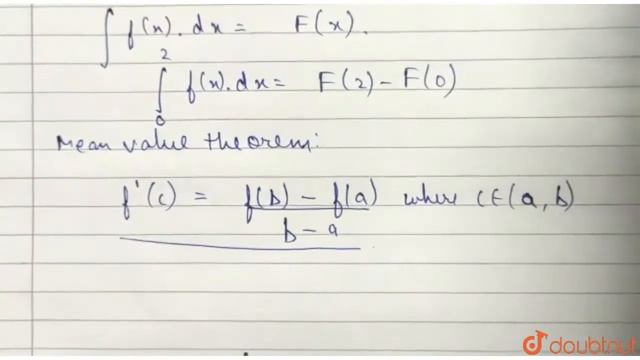 ∫ f(x). dx = F(x).
∫₀² f(x). dx = F(2) - F(0)
Mean value theorem:
f'(c) = f(b) - f(a) / b - a where c∈(a, b)
doubtnut